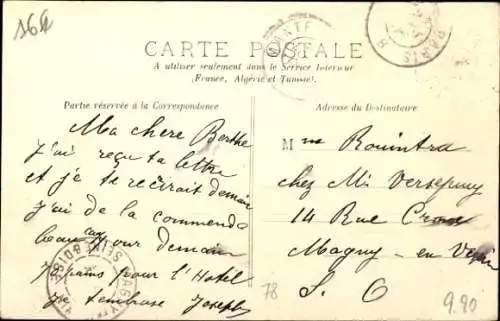 164
CARTE POSTALE
A utiliser seulement dans le Service Intérieur
(France, Algérie et Tunisie).
Partie réservée à la Correspondance
Ma chere Berthe
j'ai reçu ta lettre
et je te recirait demain
j'ai de la commende
beau pour demain
pour l'Hotel
Je t'embrase Joseph
Adresse du Destinataire
Mme Rouintra
chez Mr Versepuy
14 Rue
Magny - en Vexin
S. O
PARIS
78
9.90